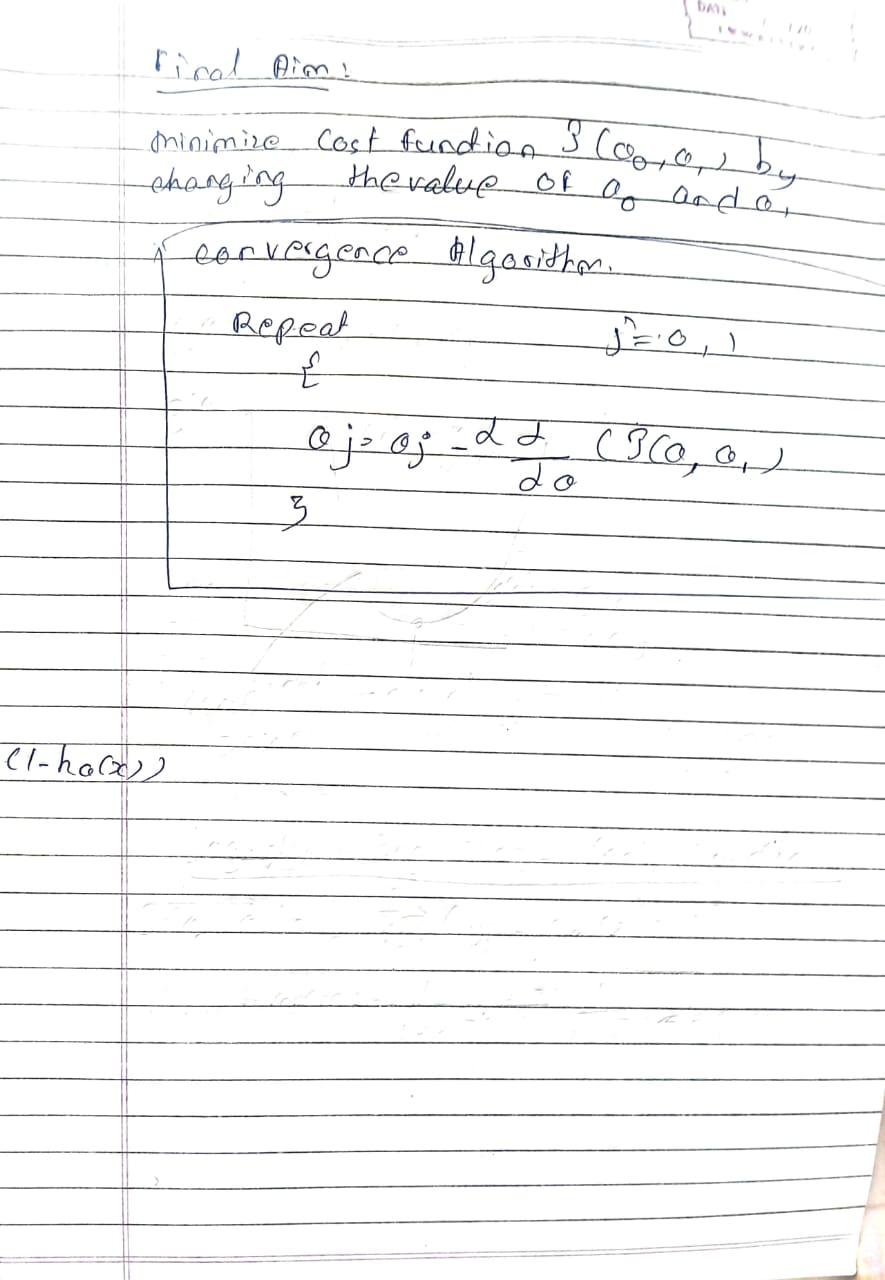 Final Aim:
minimize Cost function J(θ₀, θ₁) by
changing the value of θ₀ and θ₁
convergence Algorithm.
Repeat j = 0, 1
{
θj = θj - α d/dθ (J(θ, θ₁)
}
(1-hθ(x))